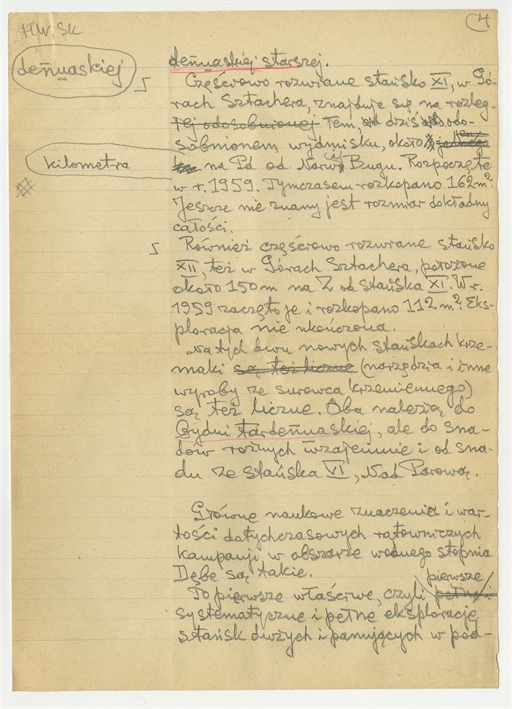 H.W. SK
4
deñuaskiej
deñuaskiej starszej.
Częściowo rozwiane stańsko XI, w Gó-
rach Sztachera, znajduje się na rozleg-
łej odosobnionej łem, dziś odo-
sobnionem, wydmisku, około
kilometra
na Pd od Narwi Bugu. Rozpoczęte
w r. 1959. Tymczasem rozkopano 162 m².
Jeszcze nie znany jest rozmiar dokładny
całości.
Również częściowo rozwiane stańsko
XII, też w Górach Sztachera, położone
około 150 m na Z od stańska XI. W r.
1959 zaczęto je i rozkopano 112 m². Eks-
ploracja nie ukończona.
Na tych dwu nowych stańskach krze-
maki są też liczne (narzędzia i inne
wyroby ze surowca krzemiennego)
są też liczne. Oba należą do
Gydni tardeñuaskiej, ale do sna-
dów różnych wzajemnie i od sna-
du ze stańska VI, Nad Parową.
Główne naukowe znaczenia i war-
tości dotychczasowych ratowniczych
kampanij w obszarze wodnego stopnia
Dębe są takie.
pierwsze
To pierwsze właściwe, czyli pełne
systematyczne i pełne eksploracje
stańsk dużych i panujących w pod-